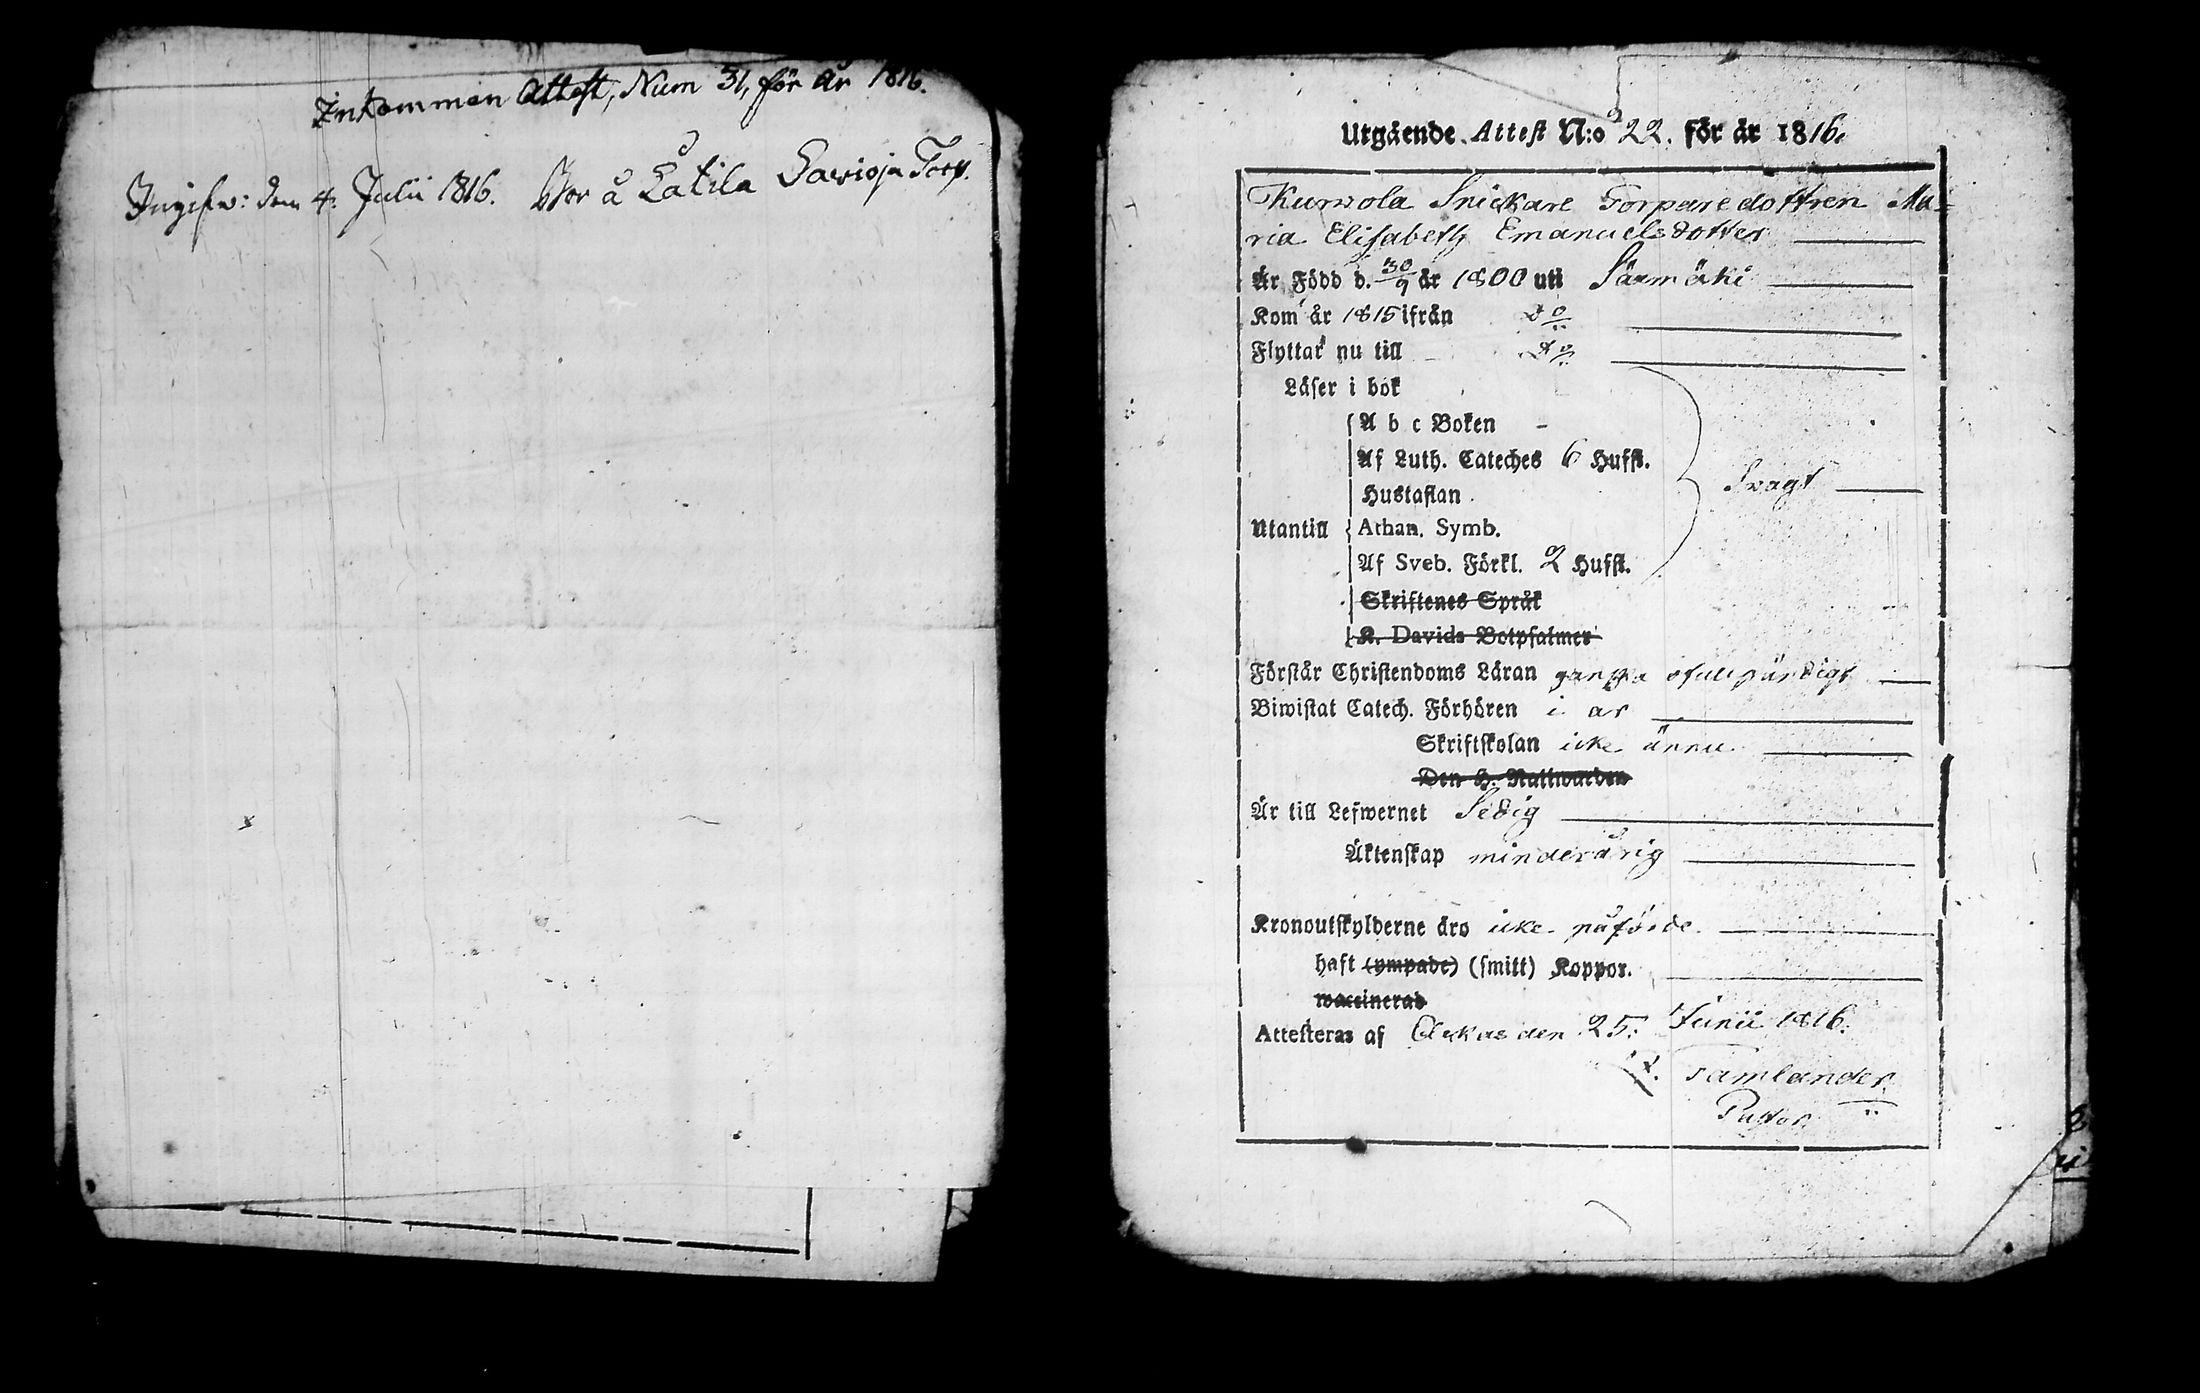 Inkommen Attest, Num 31, för år 1816.
Ingifw: den 4. Julii 1816. Bor å Latila Sawioja Torp.
Utgående Attest N:o 22. för år 1816.
Kurwola Snickare Torparedottren Ma-
ria Elisabeth Emanuelsdotter
Är Född d. 30/9 år 1800 uti Säxmäki
Kom år 1815 ifrån Do
Flyttar nu till Do
Läser i bok
A b c Boken -
Af Luth. Cateches 6 Hufst.
Hustaflan
Swagt
Utantill Athan. Symb.
Af Sveb. Förkl. 2 Hufst.
Skriftenes Språk
K. Davids Botpsalmer
Förstår Christendoms Läran ganska ofullständigt
Biwistat Catech. Förhören i år
Skriftskolan icke ännu
Den H. Nattwarden
Är till Lefwernet Sedig
Äktenskap minderårig
Kronoutskylderne äro icke påförde.
haft (ympade) (smitt) Koppor.
waccinerad
Attesteras af Ackas den 25. Junii 1816.
Tamlander
Pastor